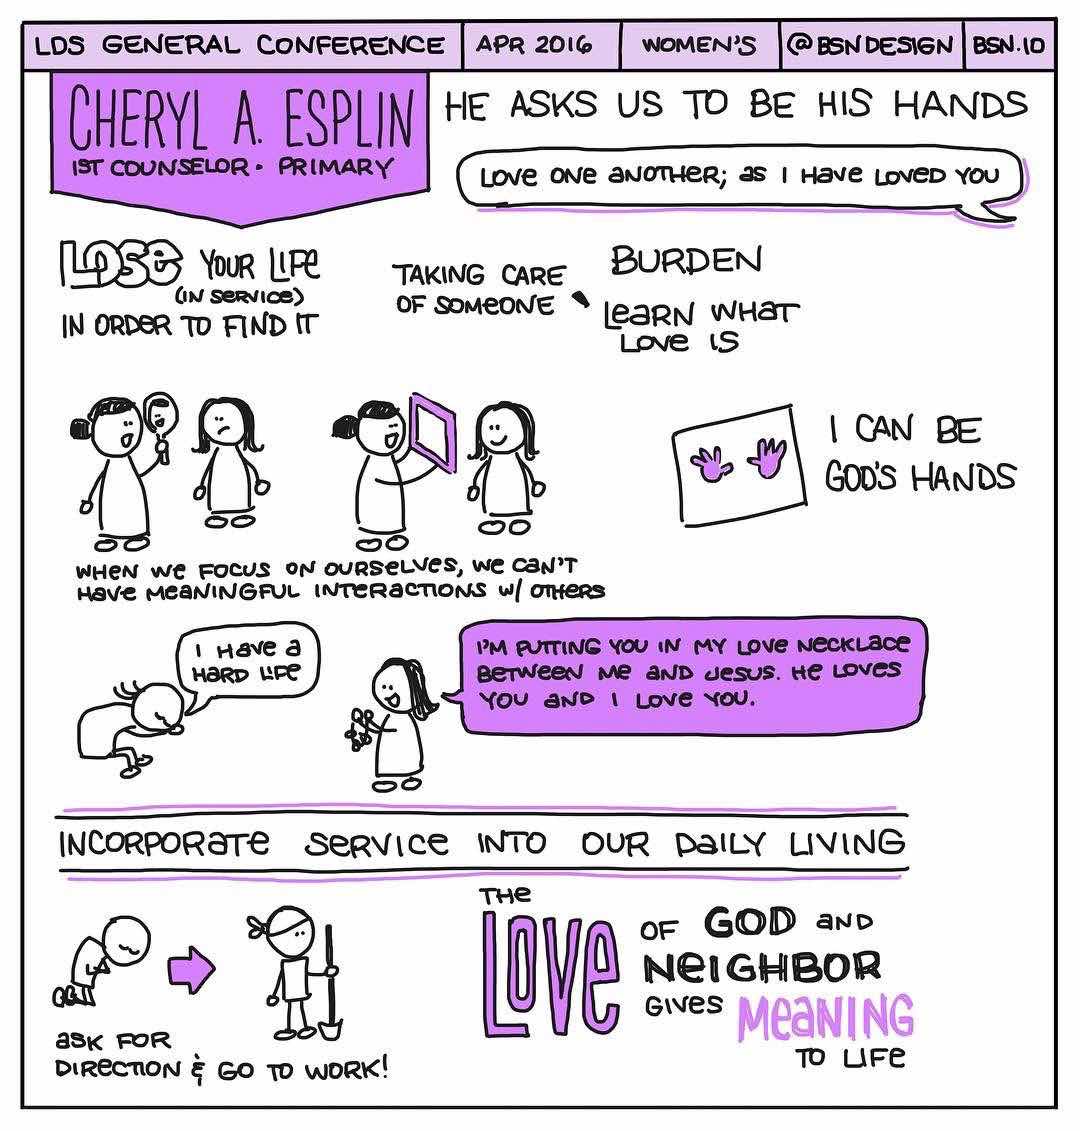 LDS GENERAL CONFERENCE
APR 2016
WOMEN'S
@BSNDESIGN
BSN.IO
CHERYL A. ESPLIN
1ST COUNSELOR • PRIMARY
HE ASKS US TO BE HIS HANDS
LOVE ONE ANOTHER; AS I HAVE LOVED YOU
LOSE YOUR LIFE
(IN SERVICE)
IN ORDER TO FIND IT
TAKING CARE
OF SOMEONE
BURDEN
LEARN WHAT
LOVE IS
I CAN BE
GOD'S HANDS
WHEN WE FOCUS ON OURSELVES, WE CAN'T
HAVE MEANINGFUL INTERACTIONS W/ OTHERS
I HAVE A
HARD LIFE
I'M PUTTING YOU IN MY LOVE NECKLACE
BETWEEN ME AND JESUS. HE LOVES
YOU AND I LOVE YOU.
INCORPORATE SERVICE INTO OUR DAILY LIVING
ASK FOR
DIRECTION & GO TO WORK!
THE
LOVE
OF GOD AND
NEIGHBOR
GIVES MEANING
TO LIFE